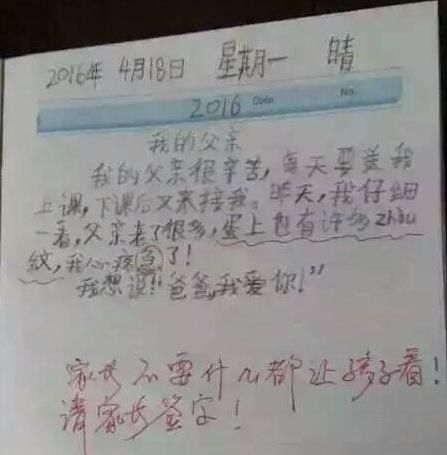 2016年 4月18日 星期一 晴
2016 Date No.
我的父亲
我的父亲很辛苦，每天要送我
上课，下课后又来接我。昨天，我仔细
一看，父亲老了很多，蛋上也有许多zhòu
纹，我心疼急了！
我想说！“爸爸，我爱你！”
家长不要什么都让孩子看！
请家长签字！